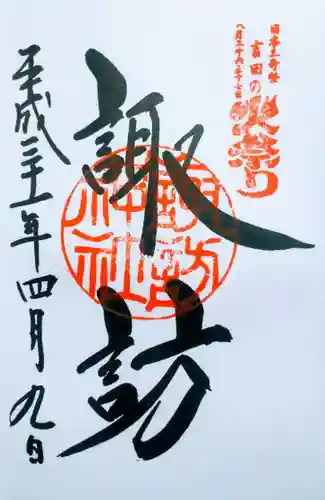 日本三奇祭
吉田の火祭り
八月二十六・二十七日
諏訪
諏訪神社
平成三十一年四月九日